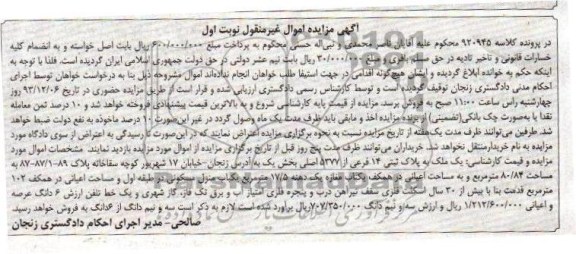 آگهی مزایده اموال غیرمنقول نوبت اول
در پرونده کلاسه ۹۲۰۹۴۵ محکوم علیه آقایان ناصر محمدی و نبی‌اله حسنی محکوم به پرداخت مبلغ ۶۰۰/۰۰۰/۰۰۰ ریال بابت اصل خواسته و به انضمام کلیه
خسارات قانونی و تاخیر تادیه در حق سلم باقری و مبلغ ۳۰/۰۰۰/۰۰۰ ریال بابت نیم عشر دولتی در حق دولت جمهوری اسلامی ایران گردیده است. فلذا با توجه به
اینکه حکم به خوانده ابلاغ گردیده و ایشان هیچگونه اقدامی در جهت استیفا طلب خواهان انجام نداده‌اند اموال مشروحه ذیل بنا به درخواست خواهان توسط اجرای
احکام مدنی دادگستری زنجان توقیف گردیده است و توسط کارشناس رسمی دادگستری ارزیابی شده و قرار است از طریق مزایده حضوری در تاریخ ۹۳/۱۲/۰۶ روز
چهارشنبه راس ساعت ۱۱:۰۰ صبح به فروش برسد. مزایده از قیمت پایه کارشناسی شروع و به بالاترین قیمت پیشنهادی فروخته خواهد شد و ۱۰ درصد ثمن معامله
نقدا یا به‌صورت چک بانکی(تضمینی) از برنده مزایده اخذ و مابقی باید ظرف مدت یک ماه وصول گردد در غیر این‌صورت ۱۰ درصد ماخوذه به نفع دولت ضبط خواهد
شد. طرفین می‌توانند ظرف مدت یک‌هفته از تاریخ مزایده نسبت به نحوه برگزاری مزایده اعتراض نمایند که در این‌صورت تا رسیدگی به اعتراض از سوی دادگاه مورد
مزایده به نام خریدار منتقل نخواهد شد. خریداران می‌توانند ظرف مدت پنج روز قبل از تاریخ برگزاری مزایده از اموال مورد مزایده بازدید نمایند. مشخصات اموال مورد
مزایده و قیمت کارشناسی: یک ملک به پلاک ثبتی ۱۴ فرعی از ۵۳۷۷ اصلی بخش یک به آدرس زنجان- خیابان ۱۷ شهریور کوچه سقاخانه پلاک ۸۹-۸۷/۱-۸۷ به
مساحت ۸۰/۸۴ مترمربع و به مساحت اعیانی در همکف یکباب مغازه یک دهنه ۱۷/۵ مترمربع یکباب منزل مسکونی در طبقه اول و مساحت اعیانی در همکف ۱۰۲
مترمربع قدمت بنا با بیش از ۳۰ سال اسکلت فلزی سقف تیرآهن درب و پنجره فلزی امتیاز آب و برق تک فاز، گاز شهری و یک خط تلفن ارزش ۶ دانگ عرصه
و اعیانی ۱/۲۱۲/۶۰۰/۰۰۰ ریال و ارزش سه و نیم دانگ ۷۰۷/۳۵۰/۰۰۰ ریال برآورد شده است لازم به ذکر است سه و نیم دانگ از ۶دانگ به فروش خواهد رسید.
صالحی- مدیر اجرای احکام دادگستری زنجان